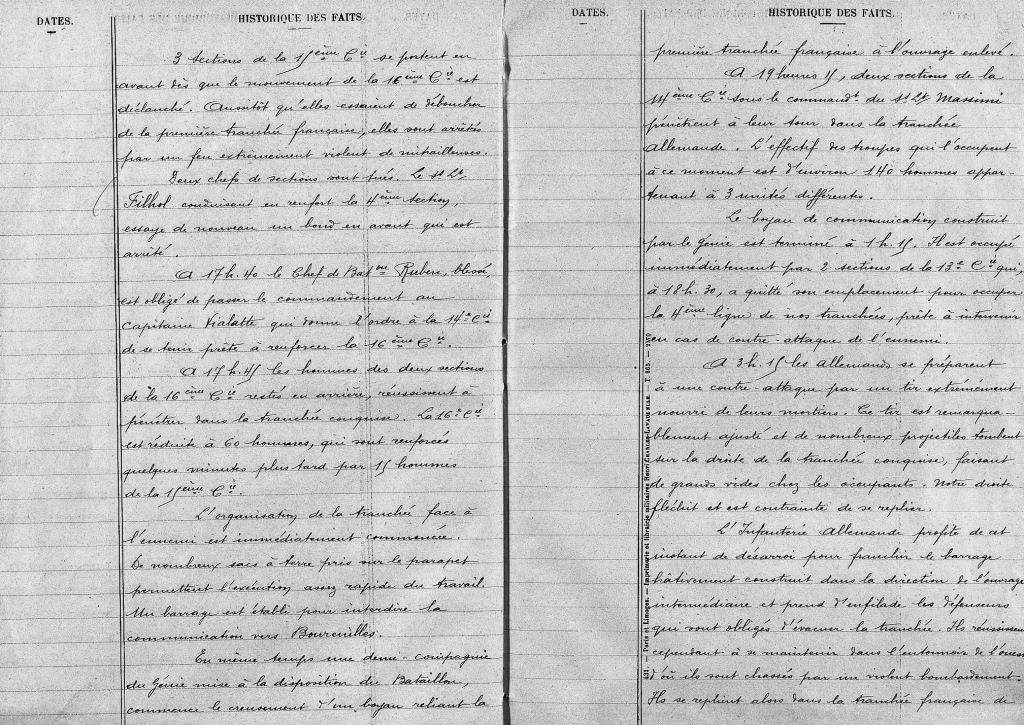 DATES.
HISTORIQUE DES FAITS.
3 Sections de la 15ème Cie se portent en
avant dès que le mouvement de la 16ème Cie est
déclanché. Aussitôt qu'elles essaient de déboucher
de la première tranchée française, elles sont arrêtées
par un feu extrêmement violent de mitrailleuses.
Deux chefs de sections sont tués. Le st Lt
Filhol conduisant en renfort la 4ème section,
essaye de nouveau un bond en avant qui est
arrêté.
A 17h.40 le Chef de Baton Ruben, blessé,
est obligé de passer le commandement au
Capitaine Vialatte qui donne l'ordre à la 14e Cie
de se tenir prête à renforcer la 16ème Cie.
A 17h.45 les hommes des deux sections
de la 16ème Cie restés en arrière, réussissent à
pénétrer dans la tranchée conquise. La 16e Cie
est réduite à 60 hommes, qui sont renforcés
quelques minutes plus tard par 15 hommes
de la 15ème Cie.
L'organisation de la tranchée face à
l'ennemi est immédiatement commencée.
De nombreux sacs à terre pris sur le parapet
permettent l'exécution assez rapide du travail.
Un barrage est établi pour interdire la
communication vers Boureuilles.
En même temps une demi-compagnie
du Génie mise à la disposition du Bataillon,
commence le creusement d'un boyau reliant la
DATES.
HISTORIQUE DES FAITS.
première tranchée française à l'ouvrage enlevé.
A 19 heures 15, deux sections de la
14ème Cie sous le commandt du st Lt Massimi
pénètrent à leur tour dans la tranchée
Allemande. L'effectif des troupes qui l'occupent
à ce moment est d'environ 140 hommes appar-
tenant à 3 unités différentes.
Le boyau de communication construit
par le Génie est terminé à 1h.15. Il est occupé
immédiatement par 2 sections de la 13e Cie qui,
à 18h.30, a quitté son emplacement pour occuper
la 4ème ligne de nos tranchées, prête à intervenir
en cas de contre-attaque de l'ennemi.
A 3h.15 les Allemands se préparent
à une contre-attaque par un tir extrêmement
nourri de leurs mortiers. Ce tir est remarqua-
blement ajusté et de nombreux projectiles tombent
sur la droite de la tranchée conquise, faisant
de grands vides chez les occupants. Notre droite
fléchit et est contrainte de se replier.
L'Infanterie Allemande profite de cet
instant de désarroi pour franchir le barrage
hâtivement construit dans la direction de l'ouvrage
intermédiaire et prend d'enfilade les défenseurs
qui sont obligés d'évacuer la tranchée. Ils réussissent
cependant à se maintenir dans l'entonnoir de l'ouest
d'où ils sont chassés par un violent bombardement.
Ils se replient alors dans la tranchée française de
431. — Paris et Limoges. — Imprimerie et librairie militaires Henri CHARLES-LAVAUZELLE. — T. 863.